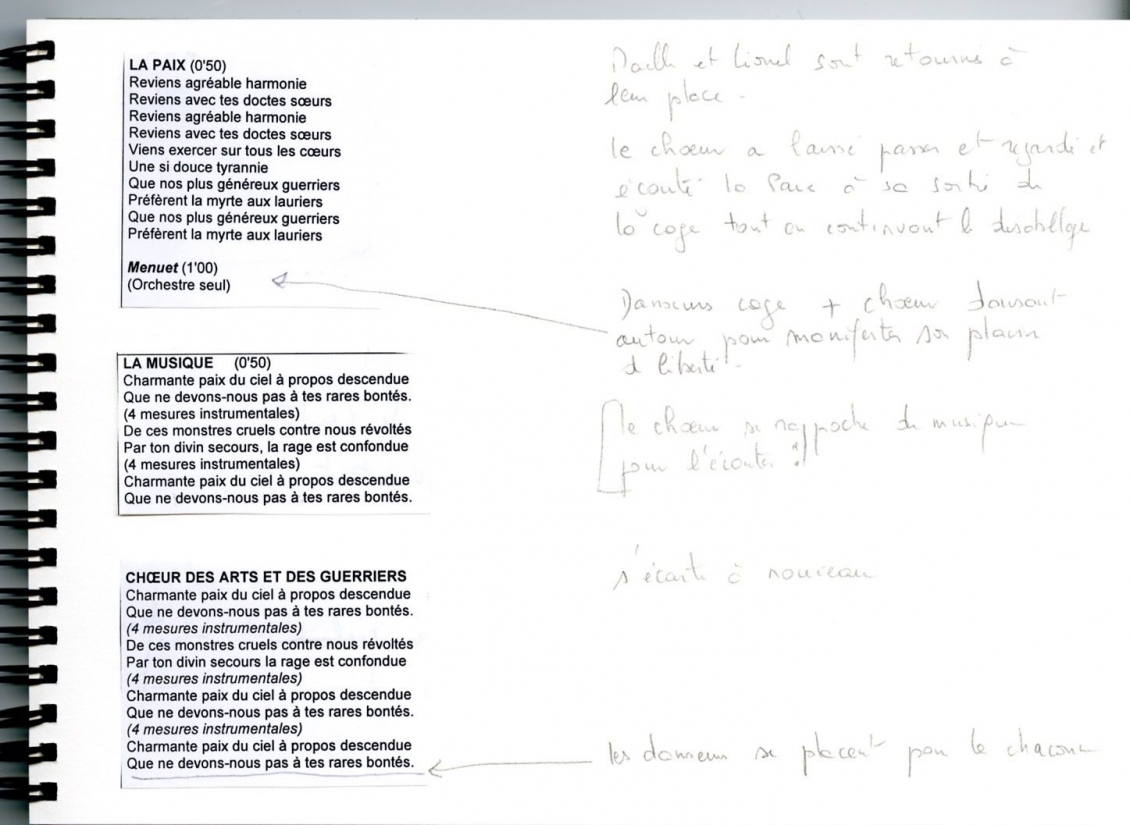 LA PAIX (0'50)
Reviens agréable harmonie
Reviens avec tes doctes sœurs
Reviens agréable harmonie
Reviens avec tes doctes sœurs
Viens exercer sur tous les cœurs
Une si douce tyrannie
Que nos plus généreux guerriers
Préfèrent la myrte aux lauriers
Que nos plus généreux guerriers
Préfèrent la myrte aux lauriers
Menuet (1'00)
(Orchestre seul)
LA MUSIQUE (0'50)
Charmante paix du ciel à propos descendue
Que ne devons-nous pas à tes rares bontés.
(4 mesures instrumentales)
De ces monstres cruels contre nous révoltés
Par ton divin secours, la rage est confondue
(4 mesures instrumentales)
Charmante paix du ciel à propos descendue
Que ne devons-nous pas à tes rares bontés.
CHŒUR DES ARTS ET DES GUERRIERS
Charmante paix du ciel à propos descendue
Que ne devons-nous pas à tes rares bontés.
(4 mesures instrumentales)
De ces monstres cruels contre nous révoltés
Par ton divin secours la rage est confondue
(4 mesures instrumentales)
Charmante paix du ciel à propos descendue
Que ne devons-nous pas à tes rares bontés.
(4 mesures instrumentales)
Charmante paix du ciel à propos descendue
Que ne devons-nous pas à tes rares bontés.
et Lionel sont retournés à
leur place.
le chœur a laissé passer et regardé et
écouté la Paix à sa sortie de
la cage tout en continuant le
Danseurs cage + chœur dansant
autour pour manifester son plaisir
d liberté.
le chœur se rapproche de musique
pour l'écouter
s'écarte à nouveau
les danseurs se placent pour la chaconne